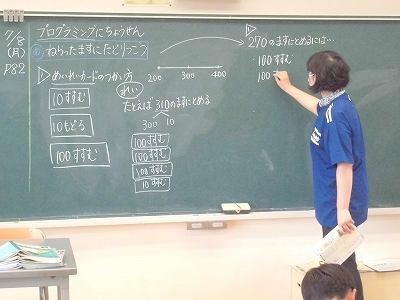 7/8
(月)
P.82
プログラミングにちょうせん
ねらったますにたどりつこう
めいれいカードのつかい方
10すすむ
10もどる
100すすむ
200 300 400
れい
たとえば310のますにとめる
300 10
100すすむ
100すすむ
100すすむ
10すすむ
270のますにとめるには…
100すすむ
100